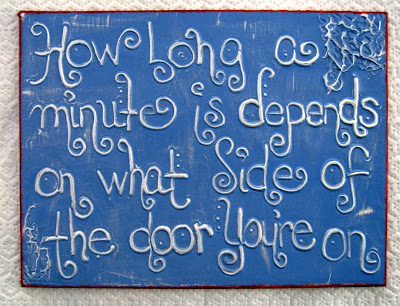 How Long a
minute is depends
on what Side of
the door You're on